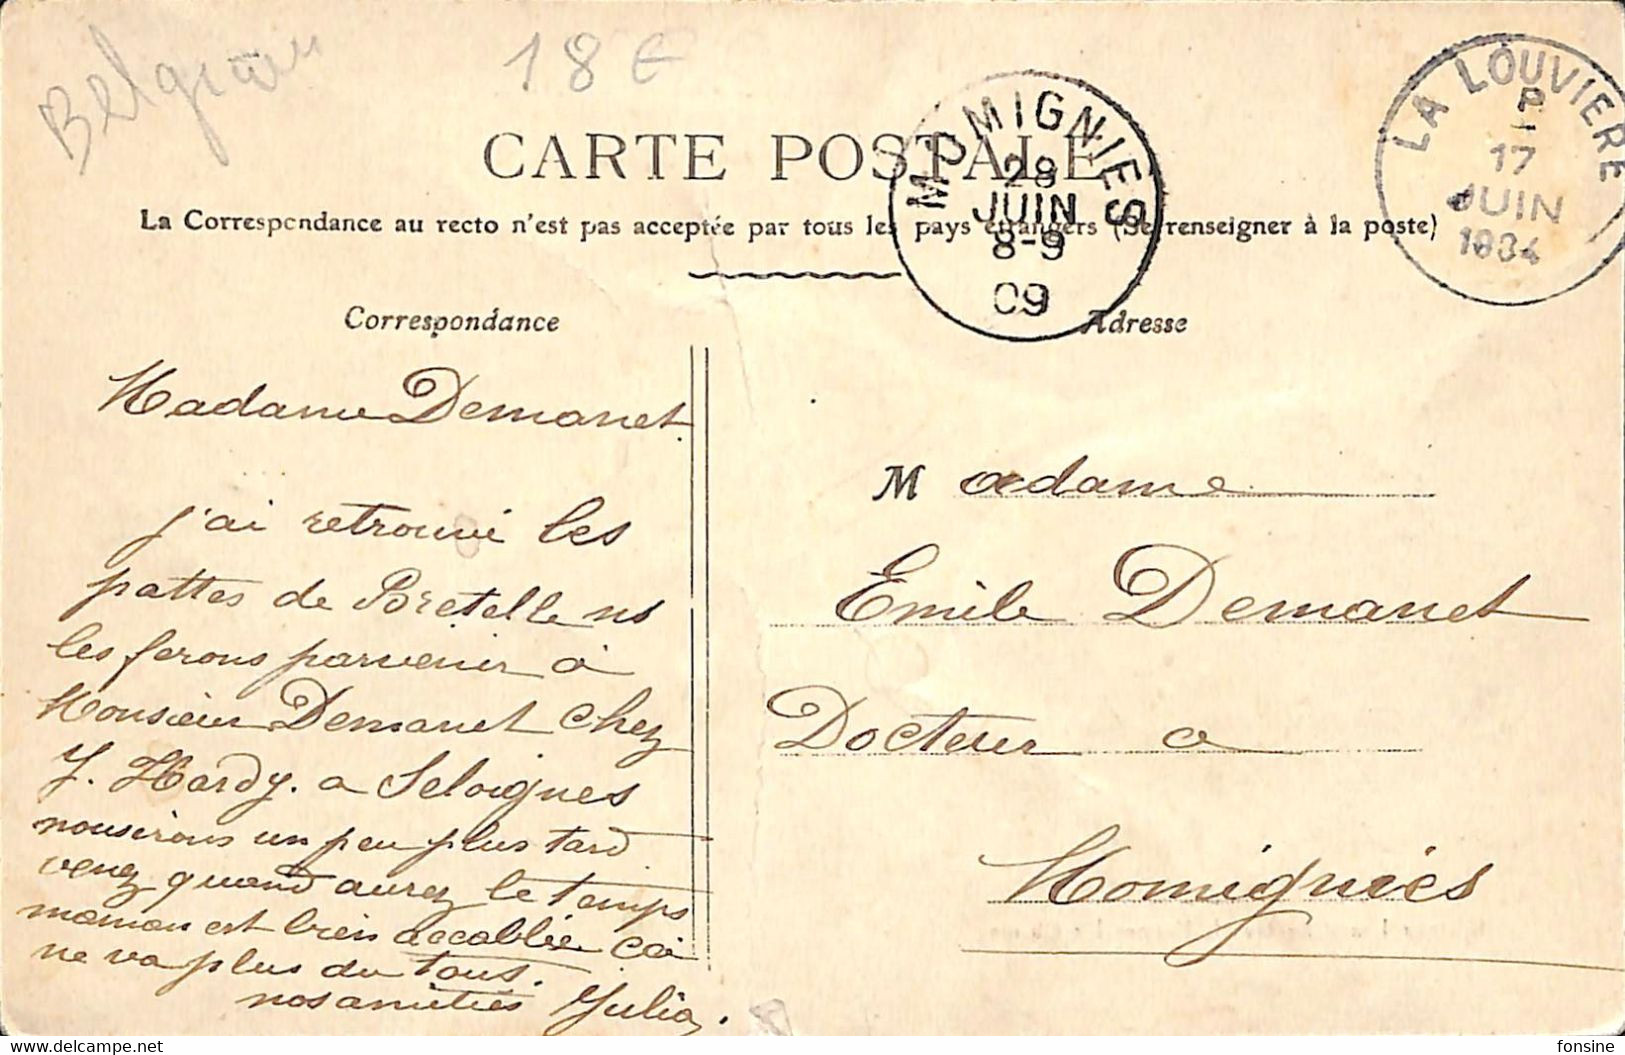 Belgique
18 €
CARTE POSTALE
La Correspondance au recto n'est pas acceptée par tous les pays étrangers (Se renseigner à la poste)
MOMIGNIES
28
JUIN
8-9
09
LA LOUVIERE
17
JUIN
1884
Correspondance
Adresse
Madame Demanet
j'ai retrouvé les
pattes de Bretelle ns
les ferons parvenir à
Monsieur Demanet chez
J. Hardy. a Seloignes
nousirons un peu plus tard
venez quand aurez le temps
maman est bien accablée cà
ne va plus du tous.
nos amitiés Julia.
Madame
Emile Demanet
Docteur a
Momignies
fonsine